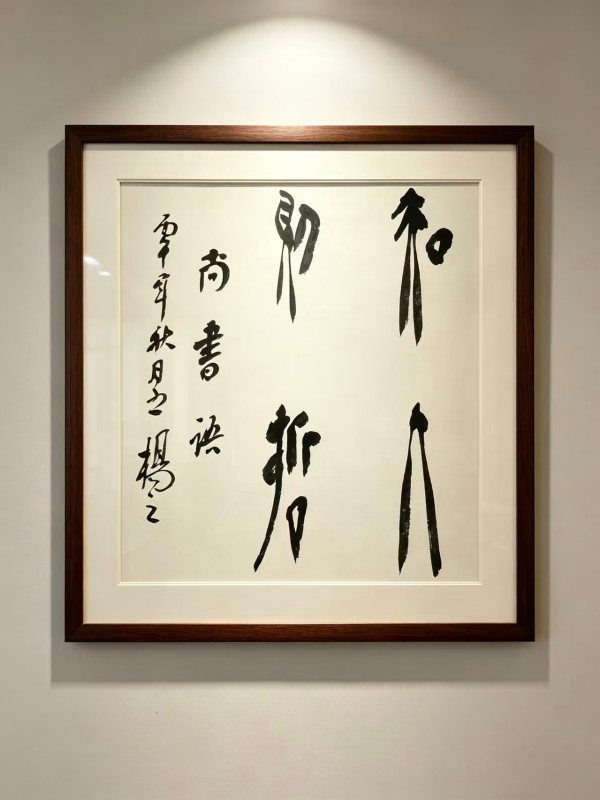 知人
則哲
尚書語
年秋月
楊之